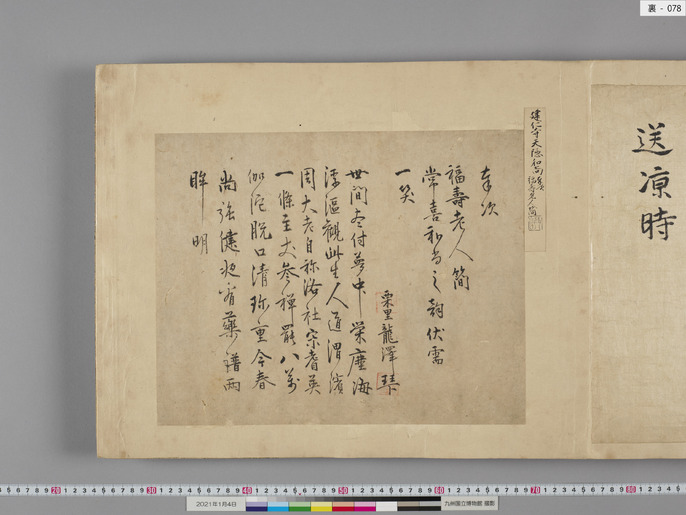 裏 - 078
送涼時
建仁寺天隠和尚
奉次
福壽老人簡
常喜和尚之韵伏需
一笑
栗里龍澤
世間盡付夢中榮塵海
浮漚觀此生人道渭濱
周大老自称洛社宋耆英
一條主丈参禪罷八萬
伽陀脱口清珎重今春
尚強健夜看藥譜両
眸明
2021年1月4日
九州国立博物館 撮影